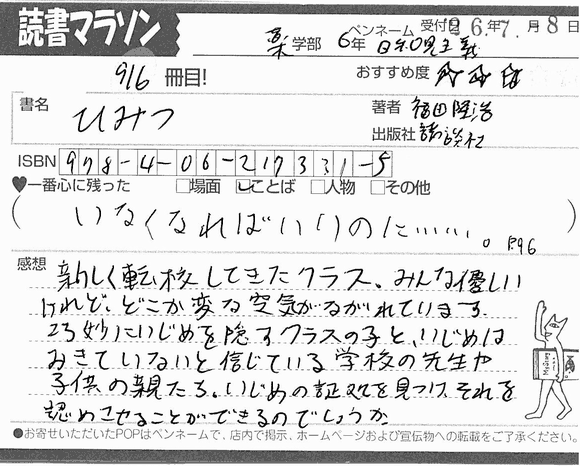 読書マラソン
ペンネーム 受付日 26年7月8日
薬学部 6年
916冊目!
おすすめ度
書名 ひみつ
著者 福田隆浩
出版社 講談社
ISBN 978-4-06-217331-5
♥一番心に残った □場面 ☑ことば □人物 □その他
(いなくなればいいのに……。P.96)
感想
新しく転校してきたクラス、みんな優しい
けれど、どこか変な空気がながれています。
巧妙にいじめを隠すクラスの子と、いじめは
おきていないと信じている学校の先生や
子供の親たち。いじめの証拠を見つけ、それを
認めさせることができるのでしょうか
●お寄せいただいたPOPはペンネームで、店内で掲示、ホームページおよび宣伝物への転載をご了承ください。